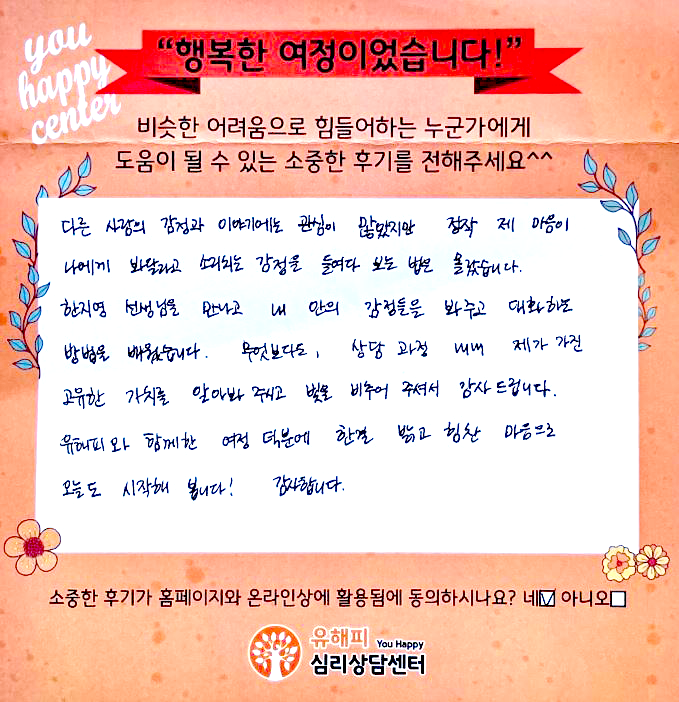 you
happy
center
“행복한 여정이었습니다!”
비슷한 어려움으로 힘들어하는 누군가에게
도움이 될 수 있는 소중한 후기를 전해주세요^^
다른 사람의 감정과 이야기에는 관심이 많았지만 정작 제 마음이
나에게 봐달라고 소리치는 감정을 들여다 보는 법은 몰랐습니다.
한지영 선생님을 만나고 내 안의 감정들을 봐주고 대화하는
방법을 배웠습니다. 무엇보다도, 상담 과정 내내 제가 가진
고유한 가치를 알아봐 주시고 빛을 비추어 주셔서 감사드립니다.
유해피와 함께한 여정 덕분에 한결 밝고 힘찬 마음으로
오늘도 시작해 봅니다! 감사합니다.
소중한 후기가 홈페이지와 온라인상에 활용됨에 동의하시나요? 네☑ 아니오□
유해피 You Happy
심리상담센터